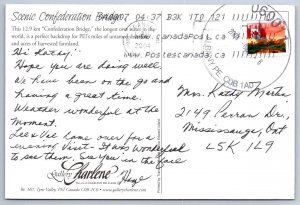 Scenic Confederation Bridge
04:37 B3K 1T0 121
This 12.9 km "Confederation Bridge," the longest one in the
world, is a perfect backdrop for PEI's miles of
and acres of harvested farmland.
2004
www.postescanada.ca
PE
C0B 1A0
Hi Kathy,
Hope you are doing well.
We have been on the go and
having a great time.
Weather wonderful at the
moment.
Lee & Vic come over for a
evening visit - It was wonderful
to see them. See you in the fall
Mrs. Kathy Martin
2149 Perran Dr.,
Mississauga, Ont
L5K 1L9
gallery Charlene
Printed in Canada
Bx. 161, Tyne Valley, PEI Canada C0B 2C0 ~ www.gallerycharlene.com